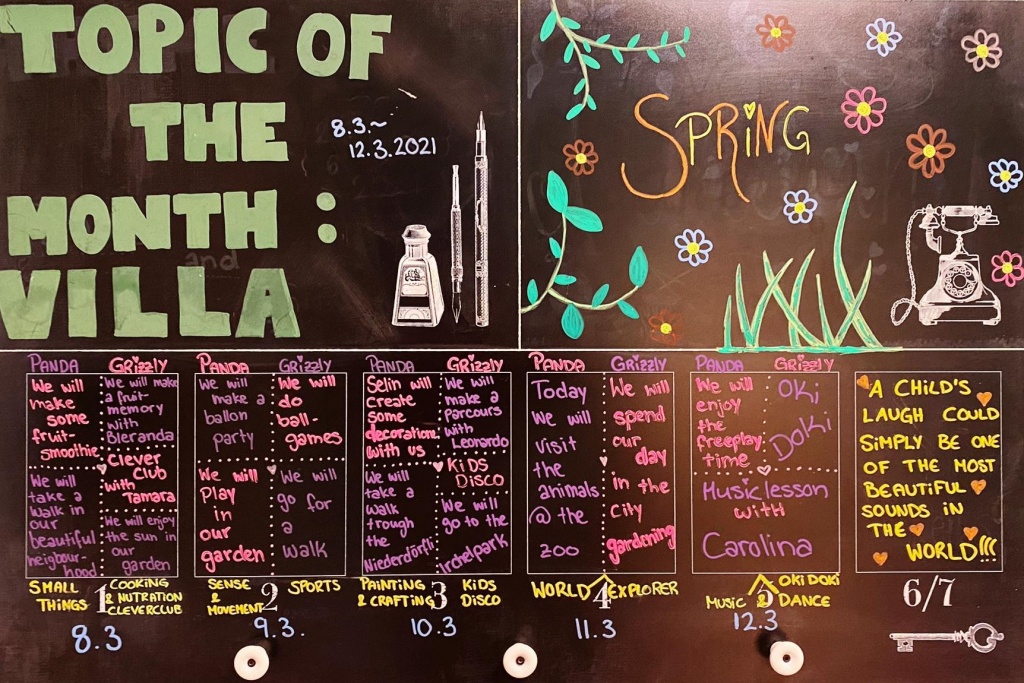 TOPIC OF
THE
MONTH :
VILLA
and
8.3.~
12.3.2021
SPRING
PANDA
We will
make
some
fruit-
smoothie
We will
take a
walk in
our
beautiful
neighbour-
hood
GRIZZLY
We will make
a fruit-
memory
with
Bleranda
Clever
Club
with
Tamara
We will enjoy
the sun in
our
garden
SMALL
THINGS
1
COOKING
& NUTRATION
CLEVERCLUB
8.3
PANDA
We will
make a
ballon
party
We will
Play
in
our
garden
GRIZZLY
We will
do
ball-
games
We will
go for
a
walk
SENSE
&
MOVEMENT
2
SPORTS
9.3.
PANDA
Selin will
create
some
decorations
with us
We will
take a
walk
trough
the
Niederdörfli
GRIZZLY
We will
make a
Parcours
with
Leonardo
KiDS
DISCO
We will
go to the
Irchelpark
PAINTING
& CRAFTING
3
KiDS
DiSCO
10.3
PANDA
Today
we will
visit
the
animals
@ the
zoo
GRIZZLY
We will
spend
our
day
in the
City
gardening
WORLD
4
EXPLORER
11.3
PANDA
We will
enjoy
the
freeplay
time
GRIZZLY
Oki
Doki
Music lesson
with
Carolina
MUSIC &
5
OKI DOKI
DANCE
12.3
A CHiLD'S
LAUGH COULD
SiMPLY BE ONE
OF THE MOST
BEAUTIFUL
SOUNDS IN
THE
WORLD!!!
6/7